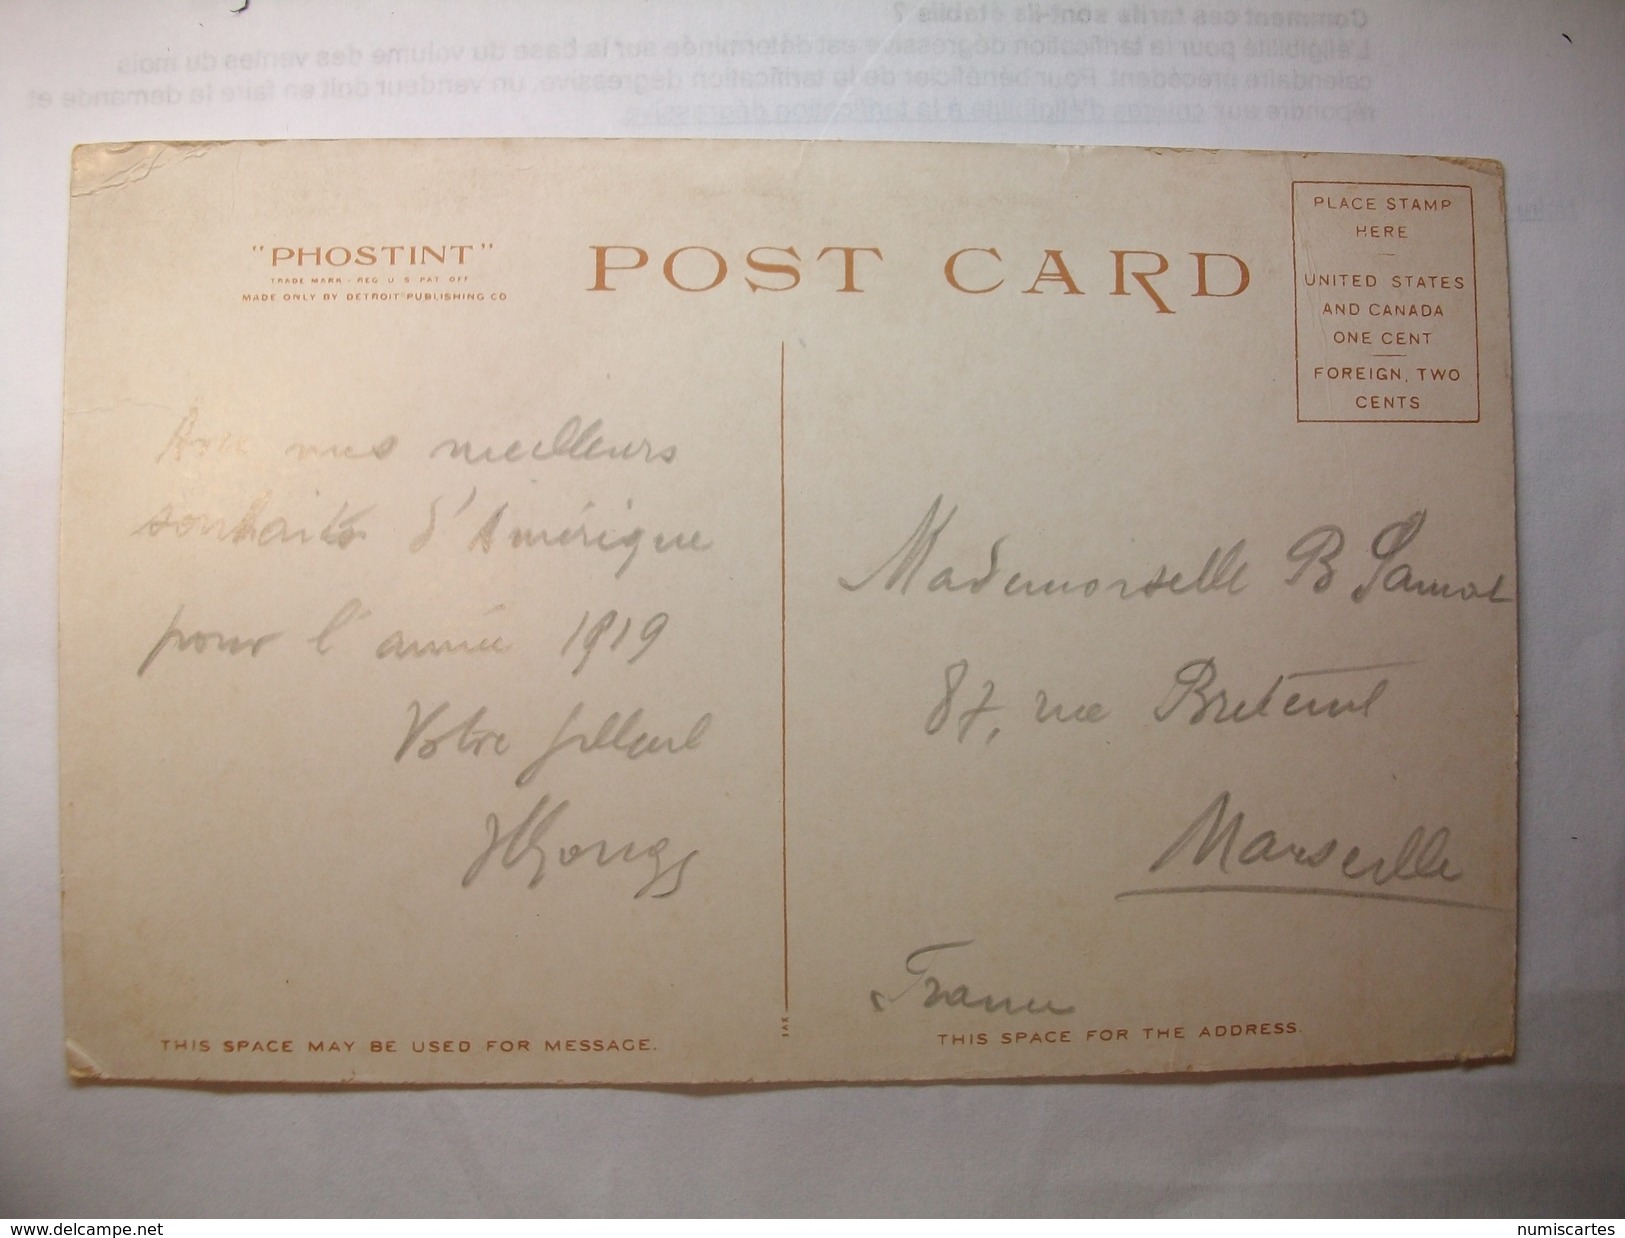 Comment ces tarifs sont-ils établis ?
L'éligibilité pour la tarification dégressive est déterminée sur la base du volume des ventes du mois
calendaire précédent. Pour bénéficier de la tarification dégressive, un vendeur doit en faire la demande et
répondre aux d'éligibilité à la tarification dégressive.
"PHOSTINT"
TRADE MARK - REG U S PAT OFF
MADE ONLY BY DETROIT PUBLISHING CO
POST CARD
PLACE STAMP
HERE
UNITED STATES
AND CANADA
ONE CENT
FOREIGN, TWO
CENTS
Avec mes meilleurs
souhaits d'Amérique
pour l'année 1919
Votre filleul
Mademoiselle B
87, rue Breteuil
Marseille
France
THIS SPACE MAY BE USED FOR MESSAGE.
THIS SPACE FOR THE ADDRESS.
www.delcampe.net
numiscartes